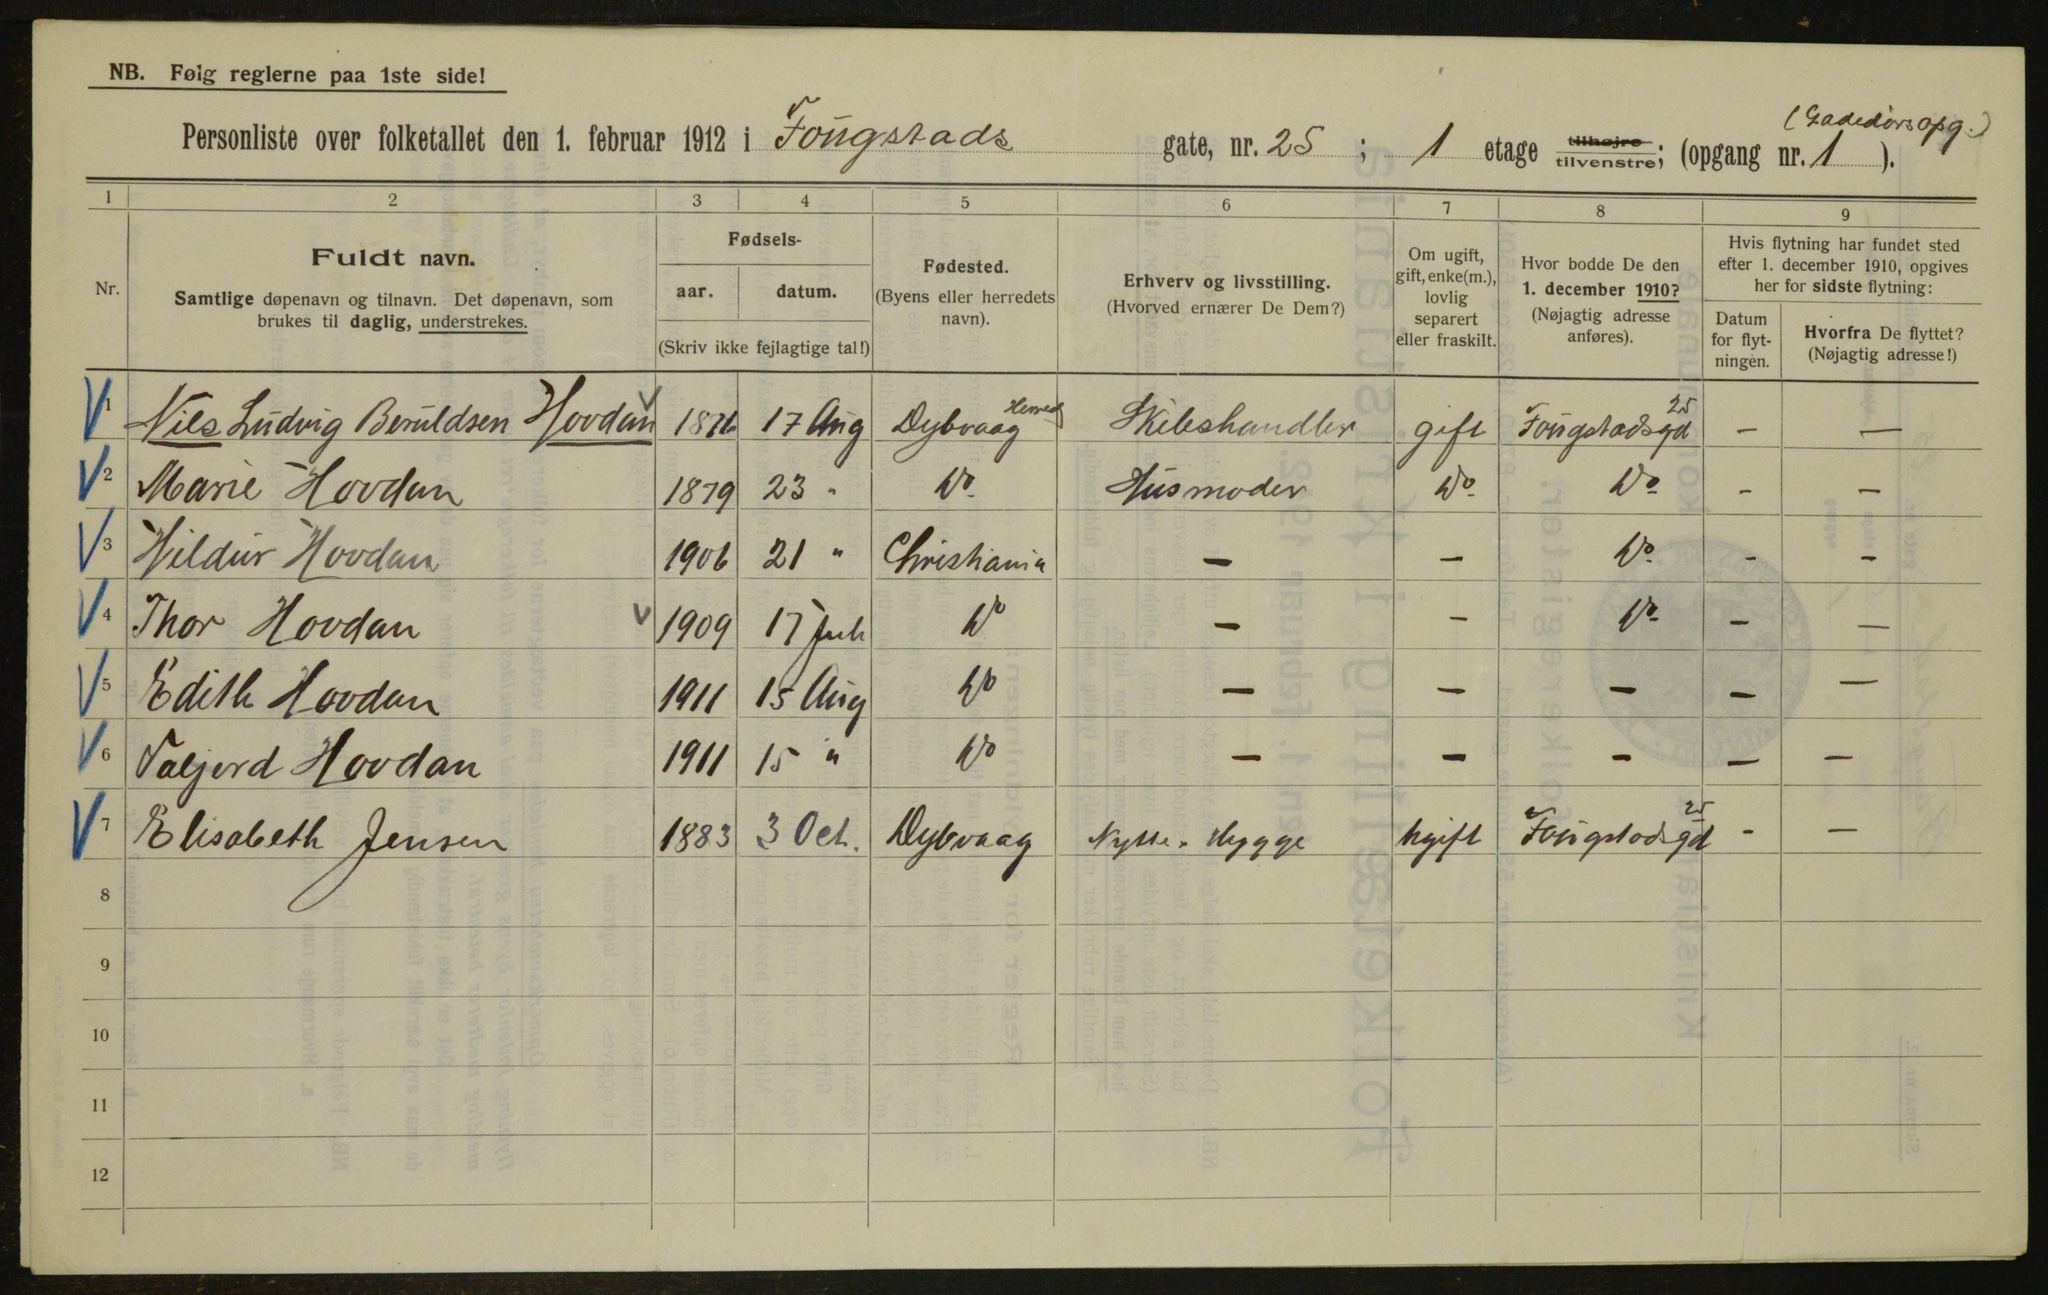 NB. Følg reglerne paa 1ste side!
(Gadedørsopg.)
Personliste over folketallet den 1. februar 1912 i Fougstads gate, nr. 25 ; 1 etage tilhøjre tilvenstre; (opgang nr. 1 ).
1 2 3 4 5 6 7 8 9
Nr.
Fuldt navn.
Samtlige døpenavn og tilnavn. Det døpenavn, som
brukes til daglig, understrekes.
Fødsels-
aar. datum.
(Skriv ikke fejlagtige tal!)
Fødested.
(Byens eller herredets
navn).
Erhverv og livsstilling.
(Hvorved ernærer De Dem?)
Om ugift,
gift, enke(m.),
lovlig
separert
eller fraskilt.
Hvor bodde De den
1. december 1910?
(Nøjagtig adresse
anføres).
Hvis flytning har fundet sted
efter 1. december 1910, opgives
her for sidste flytning:
Datum
for flyt-
ningen.
Hvorfra De flyttet?
(Nøjagtig adresse!)
1 Nils Ludvig Beruldsen Hovdan 1876 17 Aug Dybvaag Herred Skibshandler gift Fougstadsgd 25 – –
2 Marie Hovdan 1879 23 " Do. Husmoder Do. Do. – –
3 Hildur Hovdan 1906 21 " Christiania – – Do. – –
4 Thor Hovdan 1909 17 Juli Do – – Do. – –
5 Edith Hovdan 1911 15 Aug Do – – – – –
6 Valjerd Hovdan 1911 15 " Do – – – – –
7 Elisabeth Jensen 1883 3 Oct. Dybvaag Nytte. Hygge Ugift Fougstadsgd 25 – –
8
9
10
11
12